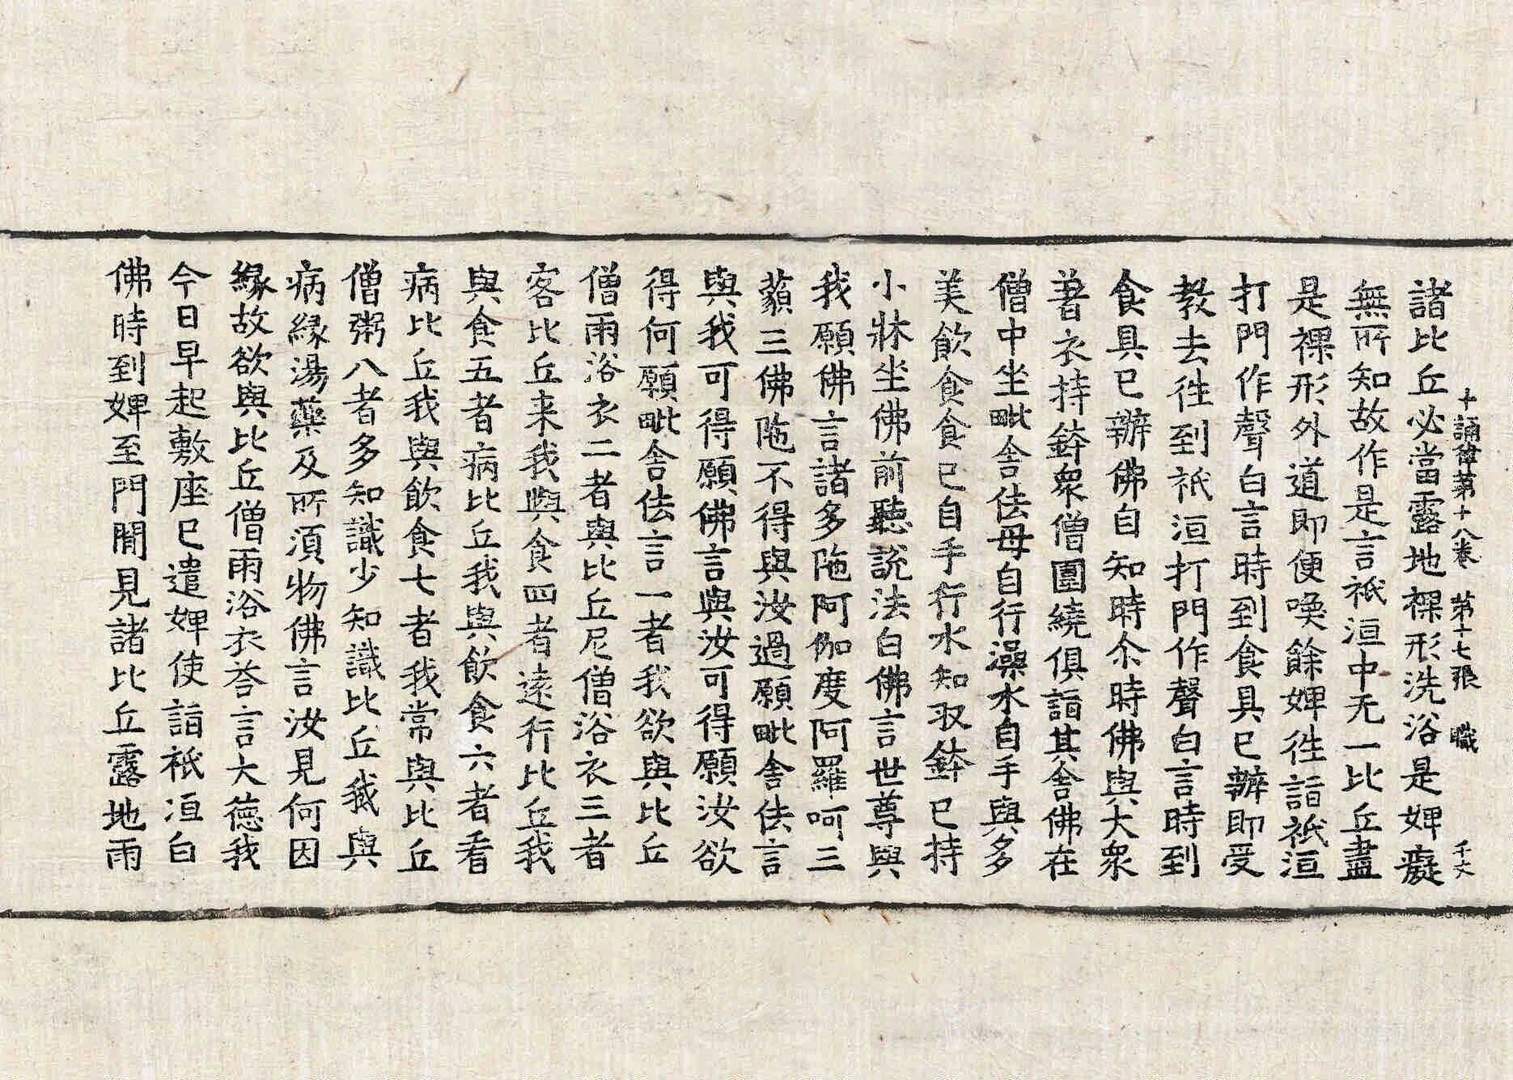 十誦律第十八卷　第十七張　職　千文
諸比丘必當露地裸形洗浴是婢癡
無所知故作是言祇洹中无一比丘盡
是裸形外道即便喚餘婢徃詣祇洹
打門作聲白言時到食具已辦即受
教去徃到祇洹打門作聲白言時到
食具已辦佛自知時尒時佛與大衆
著衣持鉢衆僧圍繞俱詣其舍佛在
僧中坐毗舍佉母自行澡水自手與多
美飲食食已自手行水知収鉢已持
小牀坐佛前聽説法白佛言世尊與
我願佛言諸多陁阿伽度阿羅呵三
藐三佛陁不得與汝過願毗舍佉言
與我可得願佛言與汝可得願汝欲
得何願毗舍佉言一者我欲與比丘
僧雨浴衣二者與比丘尼僧浴衣三者
客比丘来我與食四者遠行比丘我
與食五者病比丘我與飲食六者看
病比丘我與飲食七者我常與比丘
僧粥八者多知識少知識比丘我與
病緣湯藥及所湏物佛言汝見何因
緣故欲與比丘僧雨浴衣荅言大德我
今日早起敷座已遣婢使詣祇洹白
佛時到婢至門間見諸比丘露地雨